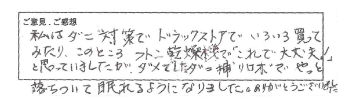 ご意見、ご感想
私はダニ対策でドラックストアでいろいろ買って
みたり、このところフトン乾燥機で"これで大丈夫!"
と思っていましたが、ダメでしたダニ捕りロボでやっと
落ちついて眠れるようになりました。ありがとうございました